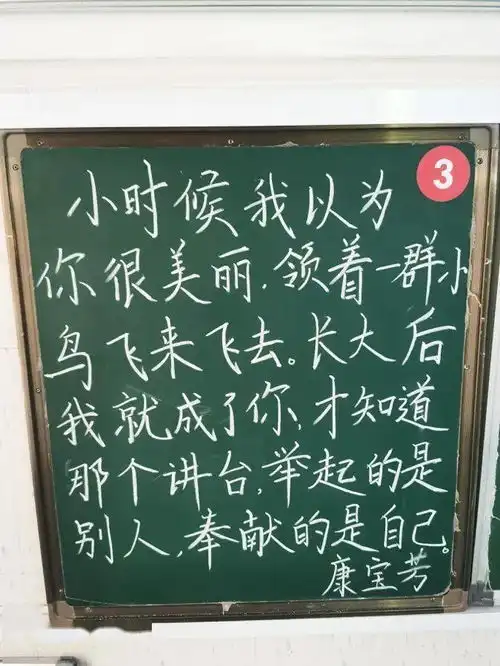 3
小时候我以为
你很美丽,领着一群小
鸟飞来飞去。长大后
我就成了你,才知道
那个讲台,举起的是
别人,奉献的是自己。
康宝芳